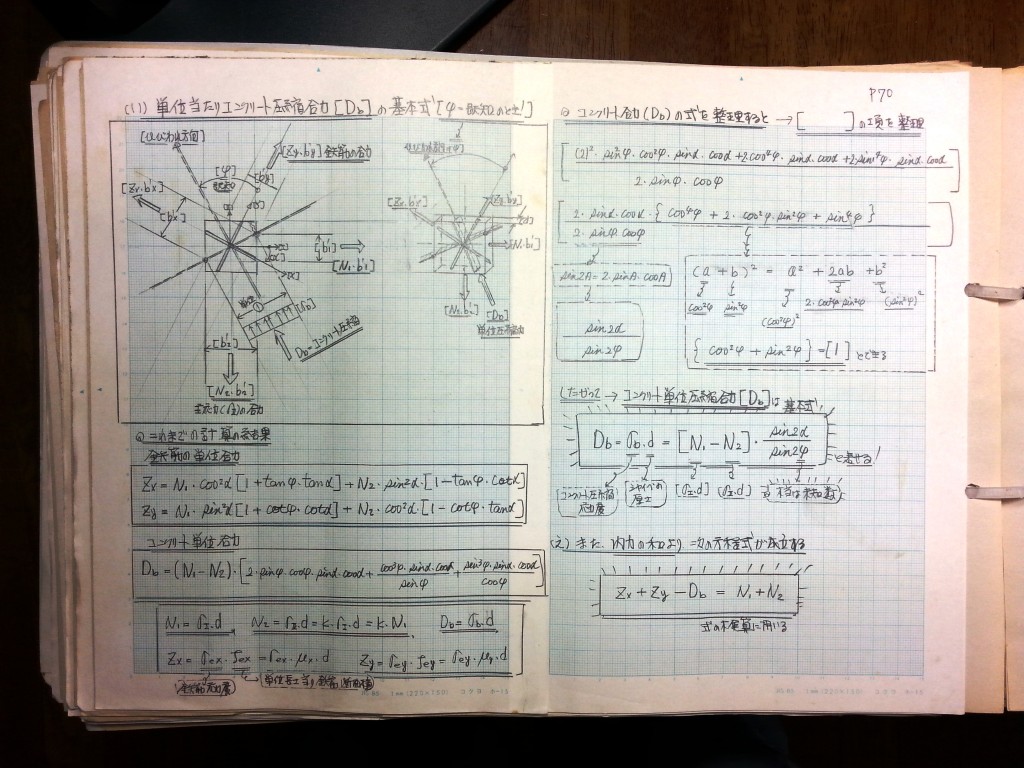 (1) 単位当たりコンクリート圧縮合力[Db]の基本式[φ-既知のとき!]
[ひびわれ方向]
[φ]
[Zy・b'y] 鉄筋の合力
[Zx・b'x]
[b'x]
[b'1]
[N1・b'1]
[b'2]
Db=コンクリート圧縮
[N2・b'2]
主応力(σ2)の合力
[Zx・b'x]
[N1・b'1]
[N2・b'2]
[Db]
単位圧縮合力
◎ これまでの計算の結果
鉄筋の単位合力
Zx = N1・cos²α[1+tanφ・tanα]+N2・sin²α・[1-tanφ・cotα]
Zy = N1・sin²α[1+cotφ・cotα]+N2・cos²α・[1-cotφ・tanα]
コンクリート単位合力
Db=(N1-N2)・[2・sinφ・cosφ・sinα・cosα+cos³φ・sinα・cosα/sinφ+sin³φ・sinα・cosα/cosφ]
N1=σ1・d N2=σ2・d=k・σ1・d=k・N1 Db=σb・d
Zx=σex・fex=σex・μx・d Zy=σey・fey=σey・μy・d
(鉄筋応力度) 単位長さ当り鉄筋(断面積)
P70
◎ コンクリート合力(Db)の式を整理すると→[ ]の項を整理
[(2)²・sin²φ・cos²φ・sinα・cosα+2cos⁴φ・sinα・cosα+2・sin⁴φ・sinα・cosα
2・sinφ・cosφ]
[2・sinα・cosα・{cos⁴φ+2・cos²φ・sin²φ+sin⁴φ}
2・sinφ・cosφ]
sin2A=2・sinA・cosA
(a+b)² = a²+2ab+b²
cos²φ sin²φ 2・cos²φ・sin²φ (sin²φ)²
(cos²φ)²
sin2α
sin2φ
{cos²φ+sin²φ}=[1] とできる
したがって→コンクリート単位圧縮合力[Db]は基本式
Db=σb・d=[N1-N2]・sin2α/sin2φ と表せる!
[コンクリート圧縮応力度] [シャイベの厚さ] [σ1・d] [σ2・d]
(2) また、内力の和より=力の方程式が成立する
Zx+Zy-Db = N1+N2
式の検算に用いる